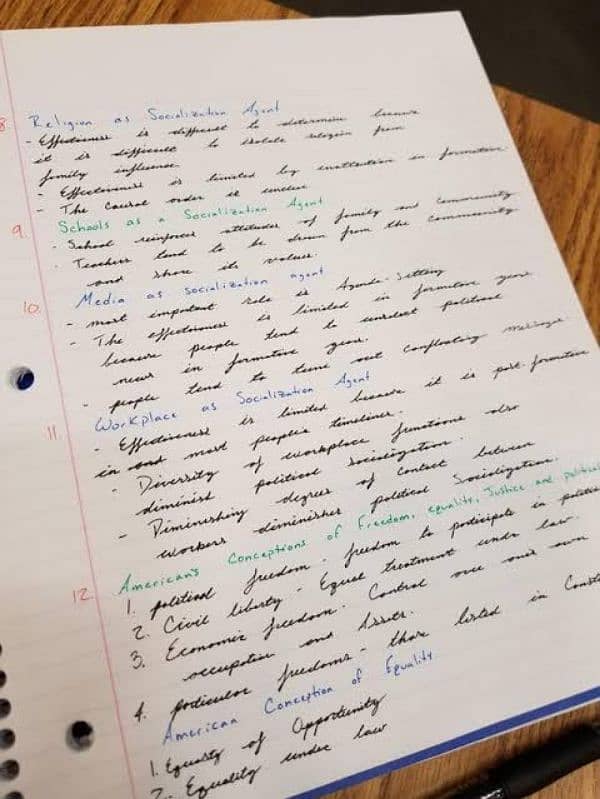 8 Religion as Socialization Agent
- Effectiveness is difficult to determine because
it is difficult to isolate religion from
family influence
- Effectiveness is limited by inattention in formative
- The causal order is unclear
9. Schools as a Socialization Agent
- School reinforces attitudes of family and community
- Teachers tend to be drawn from the community
and share its values.
10. Media as socialization agent
- most important role is Agenda-Setting
- The effectiveness is limited in formative years
because people tend to
news in formative years.
- people tend to tune out conflicting messages
11. Workplace as Socialization Agent
- Effectiveness is limited because it is post-formative
in most people's timelines.
- Diversity of workplace functions also
diminish political socialization.
- Diminishing degree of contact between
workers diminishes political Socialization.
12. American's Conceptions of Freedom, equality, Justice and political
1. political freedom - freedom to participate in politics
2. Civil liberty - Equal treatment under law.
3. Economic freedom. Control over one's own
occupation and Assets.
4. particular freedoms - those listed in Const
American Conception of Equality
1. Equality of Opportunity
2. Equality under law